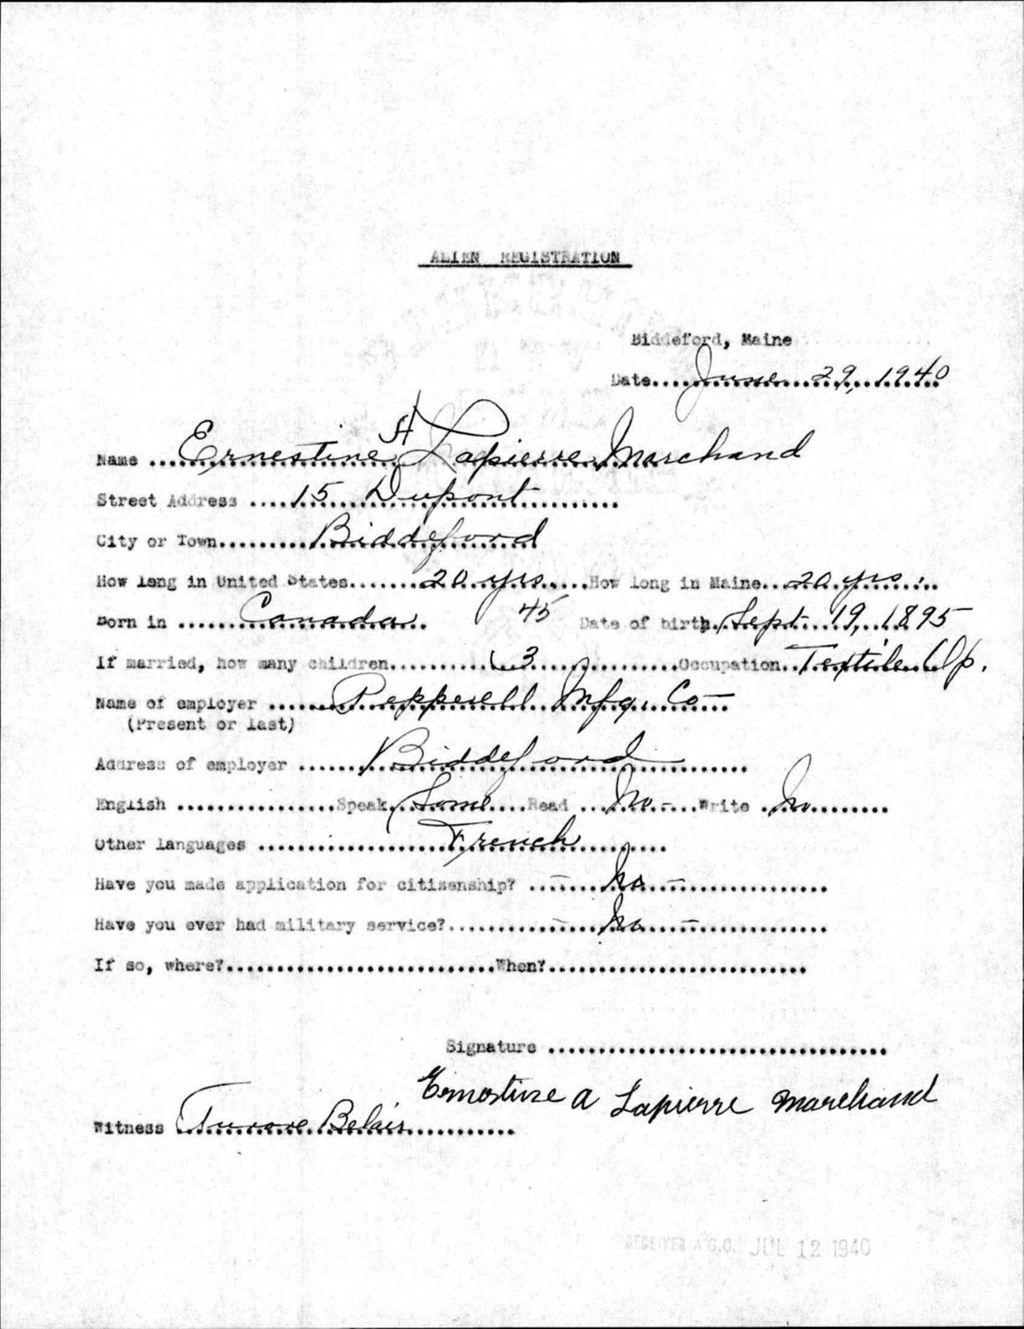 ALIEN REGISTRATION
Biddeford, Maine
Date.....June....29,..1940
Name ...Ernestine A Lapierre Marchand
Street Address ....15 Dupont..........
City or Town.........Biddeford
How long in United States.......20 yrs.....How long in Maine...20 yrs...
Born in ......Canada.. 45 Date of birth..Sept. 19, 1895
If married, how many children..........3..............Occupation..Textile Op.
Name of employer ......Pepperell Mfg. Co
(Present or last)
Address of employer ......Biddeford..........
English ................Speak..Some....Read ...No.....Write ..No........
Other languages ....................French..........
Have you made application for citizenship? ...—...No...—...............
Have you ever had military service?...........—...No...—..............
If so, where?...........................When?..........................
Signature ..................................
Ernestine A Lapierre Marchand
Witness
RECEIVED A.G.O. JUL 12 1940